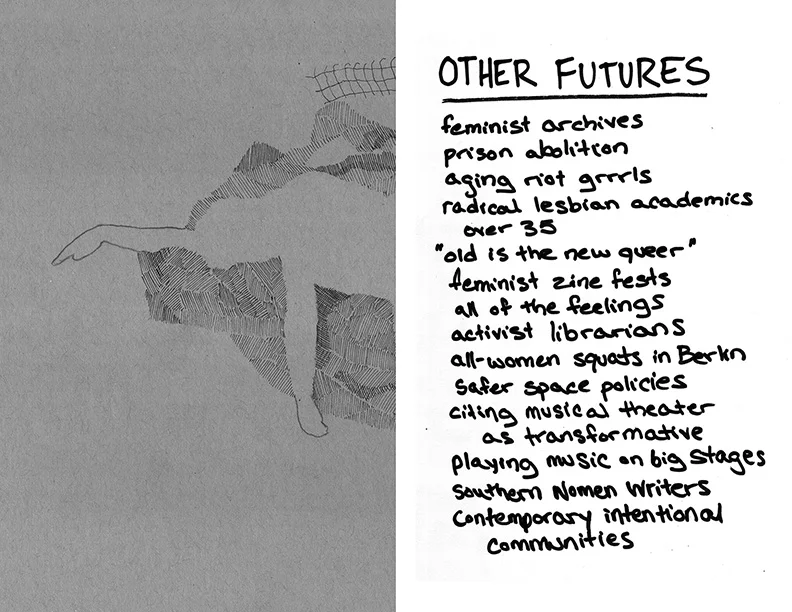 OTHER FUTURES
feminist archives
prison abolition
aging riot grrrls
radical lesbian academics
over 35
"old is the new queer"
feminist zine fests
all of the feelings
activist librarians
all-women squats in Berlin
safer space policies
citing musical theater
as transformative
playing music on big stages
Southern Women Writers
contemporary intentional
communities